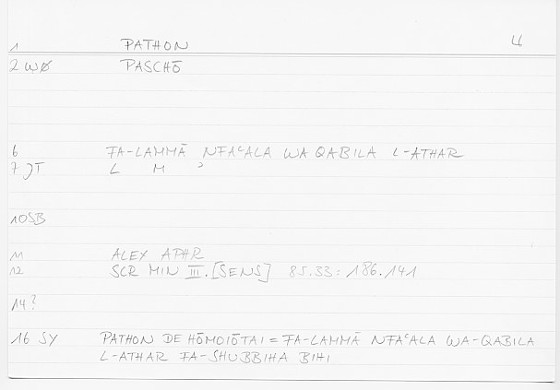 1 PATHON 4
2 WØ PASCHŌ
6 FA-LAMMĀ NFAᶜALA WA QABILA L-ATHAR
7 JT L M ᵓ
10 SB
11 ALEX APHR
12 SCR MIN III.[SENS] 85.33: 186.141
14?
16 SY PATHON DE HŌMOIŌTAI = FA-LAMMĀ NFAᶜALA WA-QABILA
L-ATHAR FA-SHUBBIHA BIHI